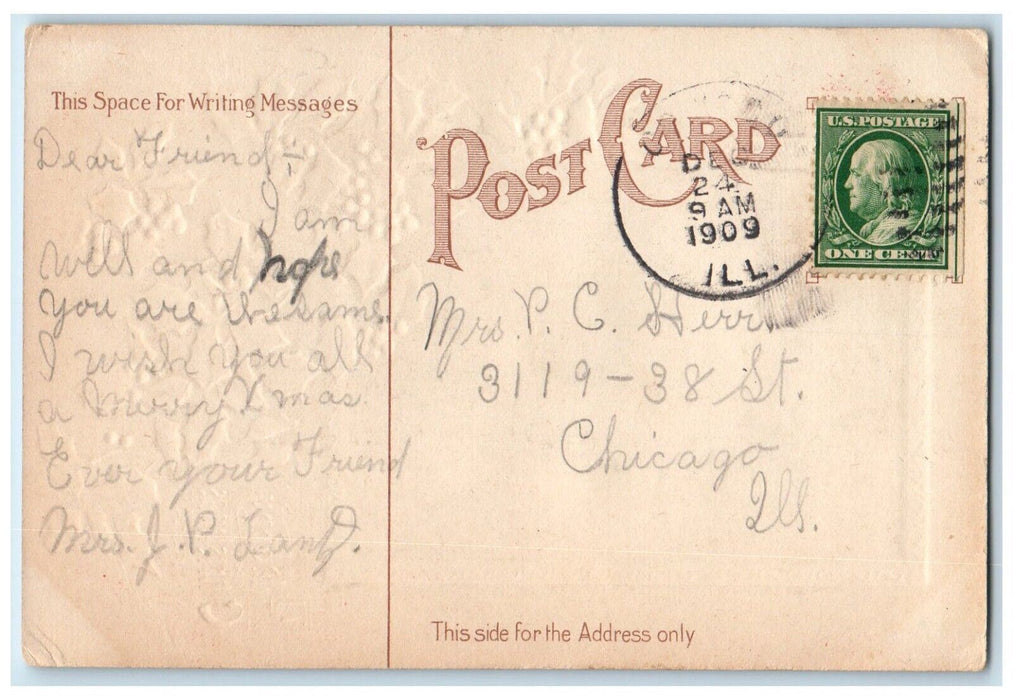 This Space For Writing Messages
Dear Friend:-
I am
well and hope
you are the same.
I wish you all
a Merry Xmas.
Ever your Friend
Mrs. J. P.
POST CARD
DEC
24
9 AM
1909
ILL.
U.S. POSTAGE
ONE CENT
Mrs. P. C. Herr
3119-38 St.
Chicago
Ills.
This side for the Address only